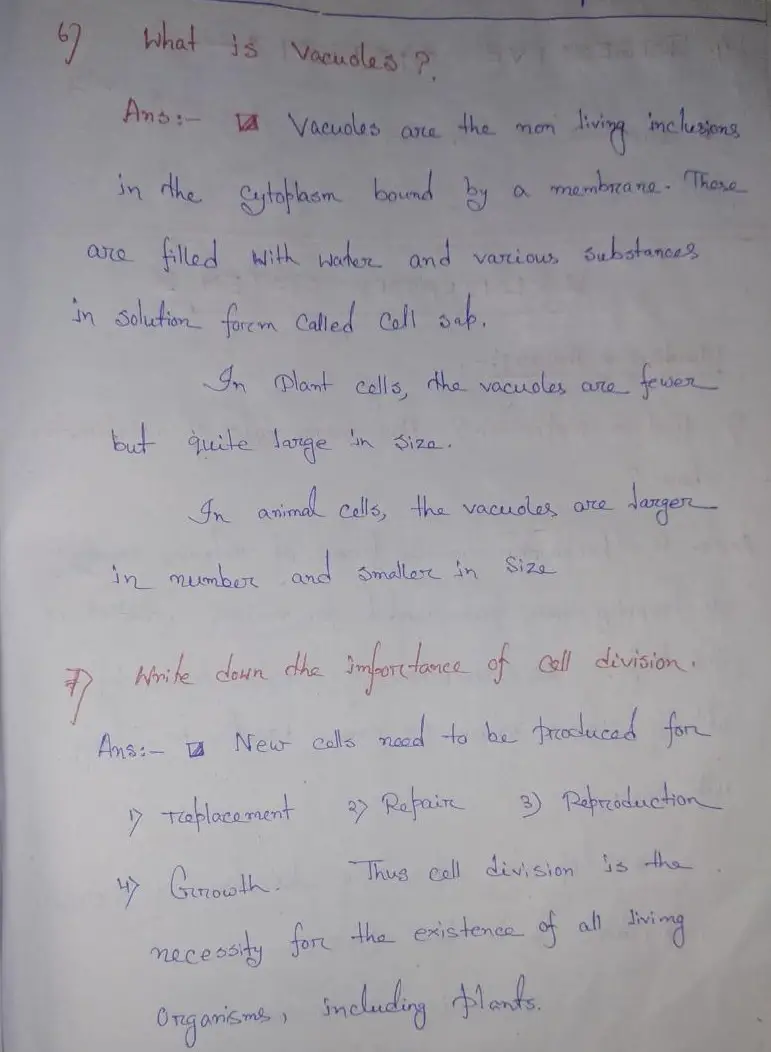 6) What is Vacuoles ?
Ans:- Vacuoles are the non living inclusions
in the cytoplasm bound by a membrane. These
are filled with water and various substances
in solution form called Cell sap.
In Plant cells, the vacuoles are fewer
but quite large in size.
In animal cells, the vacuoles are larger
in number and smaller in size
7) Write down the importance of cell division.
Ans:- New cells need to be produced for
1) replacement 2) Repair 3) Reproduction
4) Growth. Thus cell division is the
necessity for the existence of all living
organisms, including plants.